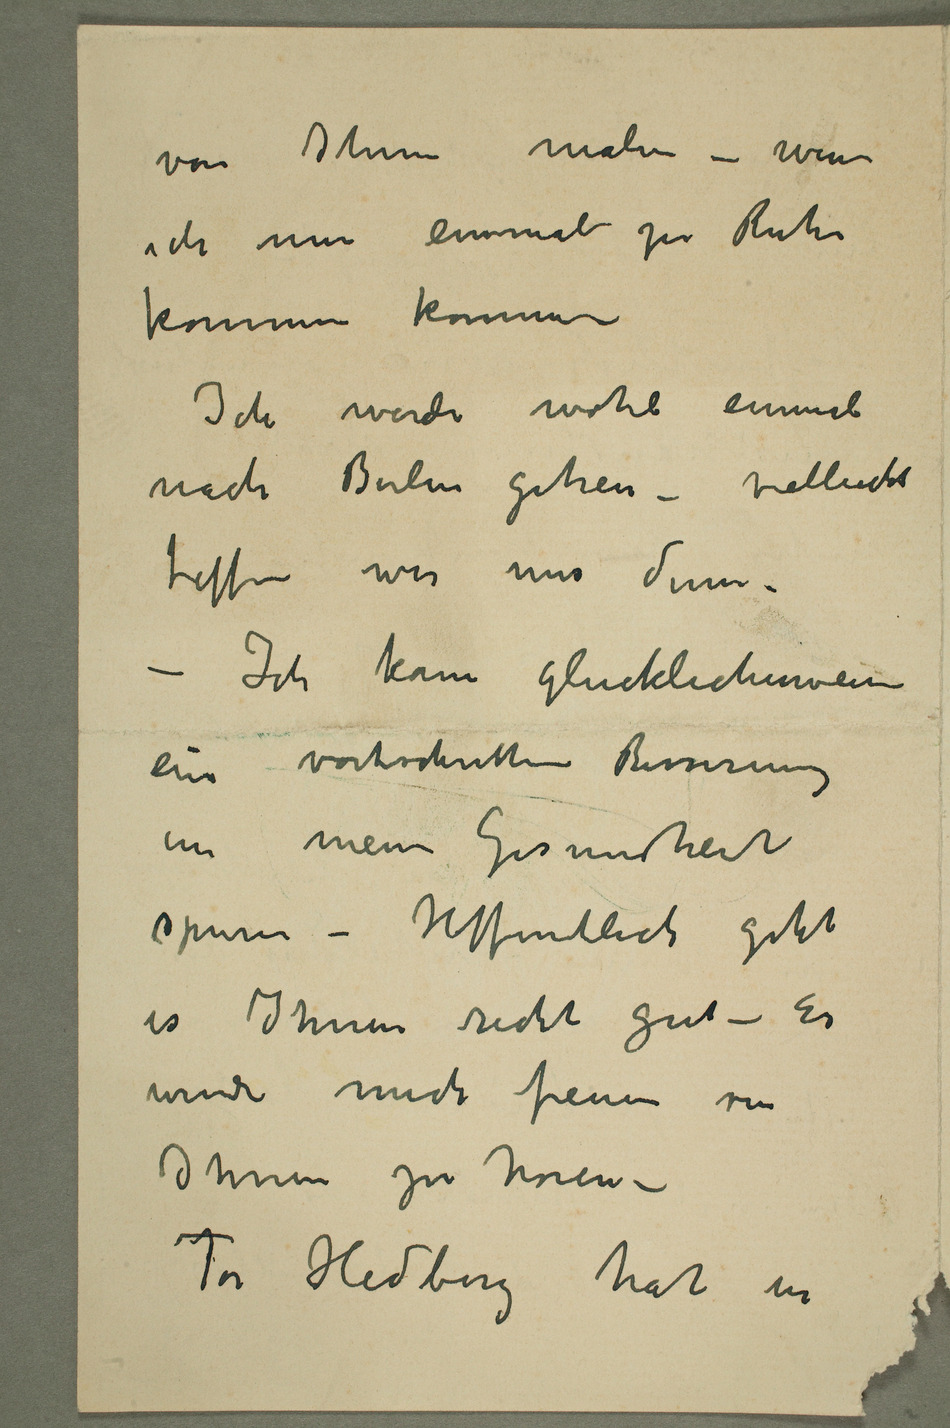 von Ihnen malen – wenn
ich nur einmal zu Ruhe
kommen kommen
Ich werde wohl einmal
nach Berlin gehen – vielleicht
teffen wir uns denn.
– Ich kann glucklicherweise
ein vortschritten Besserung
in meine Gesundheit
spuren – Hoffentlich geht
es Ihnen recht gut – Es
wurde mich freuen von
Ihnen zu horen –
Tor Hedberg hat in